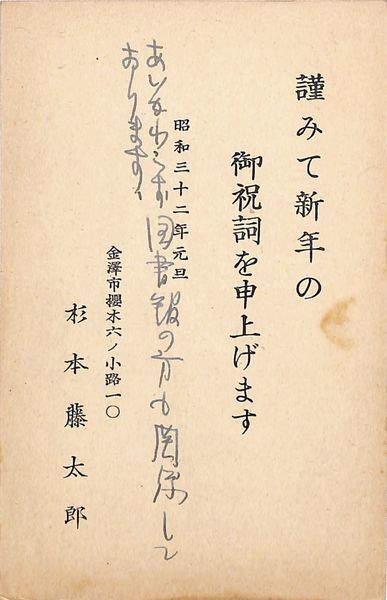 謹みて新年の
御祝詞を申上げます
昭和三十二年元旦
あいかわらず図書館の方も関係して
おります、
金澤市櫻木六ノ小路一〇
杉本藤太郎